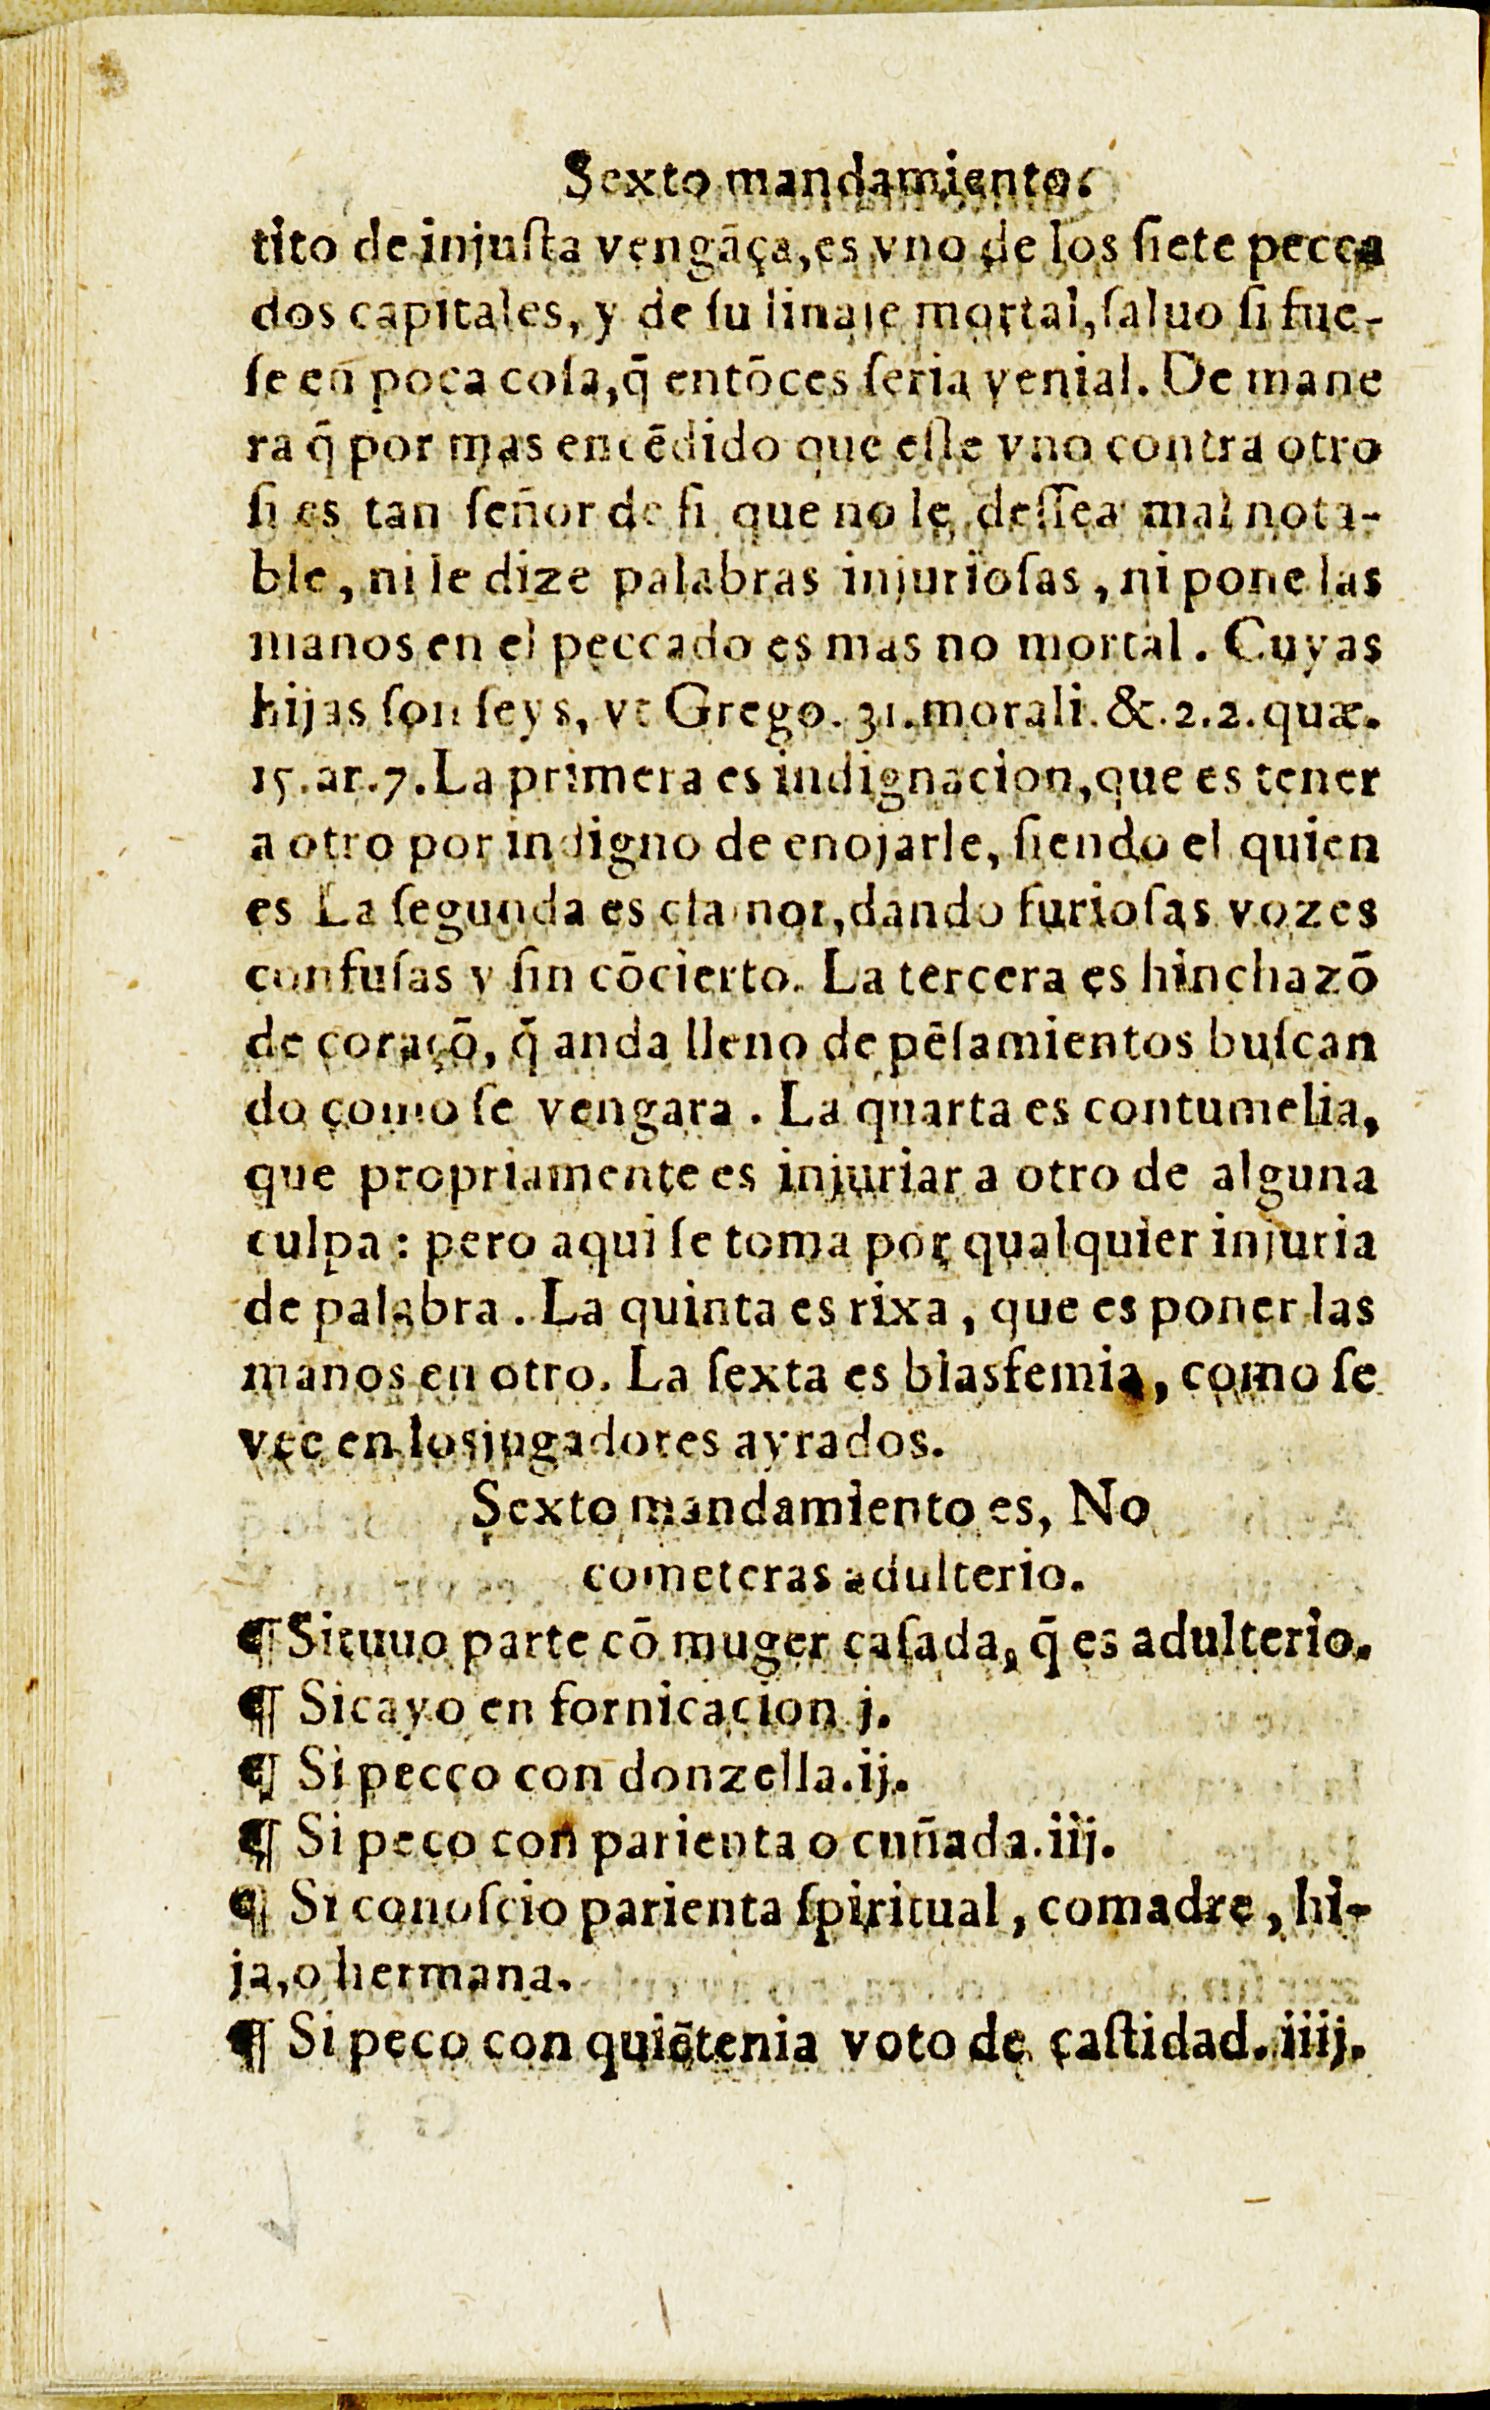 Sexto mandamiento.
tito de injuſta vengãça,es vno de los ſiete pecca
dos capitales, y de ſu linaje mortal,ſaluo ſi fue-
ſe en poca coſa,q̃ entõces ſeria venial. De mane
ra q̃ por mas encẽdido que eſte vno contra otro
ſi es tan ſeñor de ſi que no le deſſea mal nota-
ble, ni le dize palabras injurioſas, ni pone las
manos en el peccado es mas no mortal. Cuyas
hijas ſon ſeys, vt Grego. 31.morali.&.2.2.quæ.
15.ar.7.La primera es indignacion,que es tener
a otro por indigno de enojarle, ſiendo el quien
es La ſegunda es clamor,dando furioſas vozes
confuſas y ſin cõcierto. La tercera es hinchazõ
de coraçõ, q̃ anda lleno de pẽſamientos buſcan
do como ſe vengara. La quarta es contumelia,
que propriamente es injuriar a otro de alguna
culpa: pero aqui ſe toma por qualquier injuria
de palabra. La quinta es rixa, que es poner las
manos en otro. La ſexta es blasfemia, como ſe
vee en los jugadores ayrados.
Sexto mandamiento es, No
cometeras adulterio.
¶ Si tuuo parte cõ muger caſada, q̃ es adulterio.
¶ Si cayo en fornicacion j.
¶ Si pecco con donzella.ij.
¶ Si peco con parienta o cuñada.iij.
¶ Si conoſcio parienta ſpiritual, comadre, hi-
ja,o hermana.
¶ Si peco con quiẽ tenia voto de caſtidad.iiij.